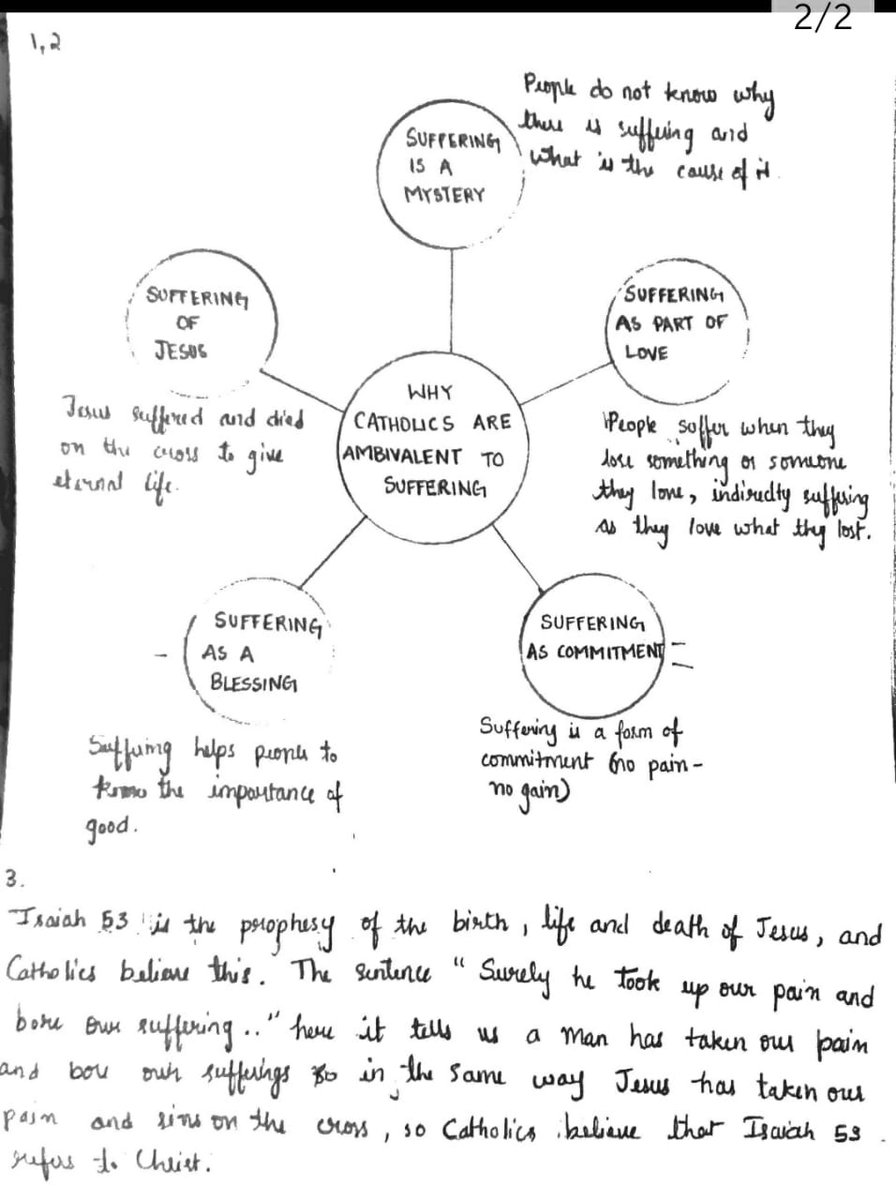 2/2
1,2
SUFFERING
IS A
MYSTERY
People do not know why
there is suffering and
what is the cause of it.
SUFFERING
AS PART OF
LOVE
People suffer when they
lose something or someone
they love, indirectly suffering
as they love what they lost.
SUFFERING
OF
JESUS
Jesus suffered and died
on the cross to give
eternal life.
WHY
CATHOLICS ARE
AMBIVALENT TO
SUFFERING
SUFFERING
AS A
BLESSING
Suffering helps people to
know the importance of
good.
SUFFERING
AS COMMITMENT
Suffering is a form of
commitment (no pain-
no gain)
3.
Isaiah 53 is the prophesy of the birth, life and death of Jesus, and
Catholics believe this. The sentence "Surely he took up our pain and
bore our suffering.." here it tells us a man has taken our pain
and bore our sufferings so in the same way Jesus has taken our
pain and sins on the cross, so Catholics believe that Isaiah 53
refers to Christ.